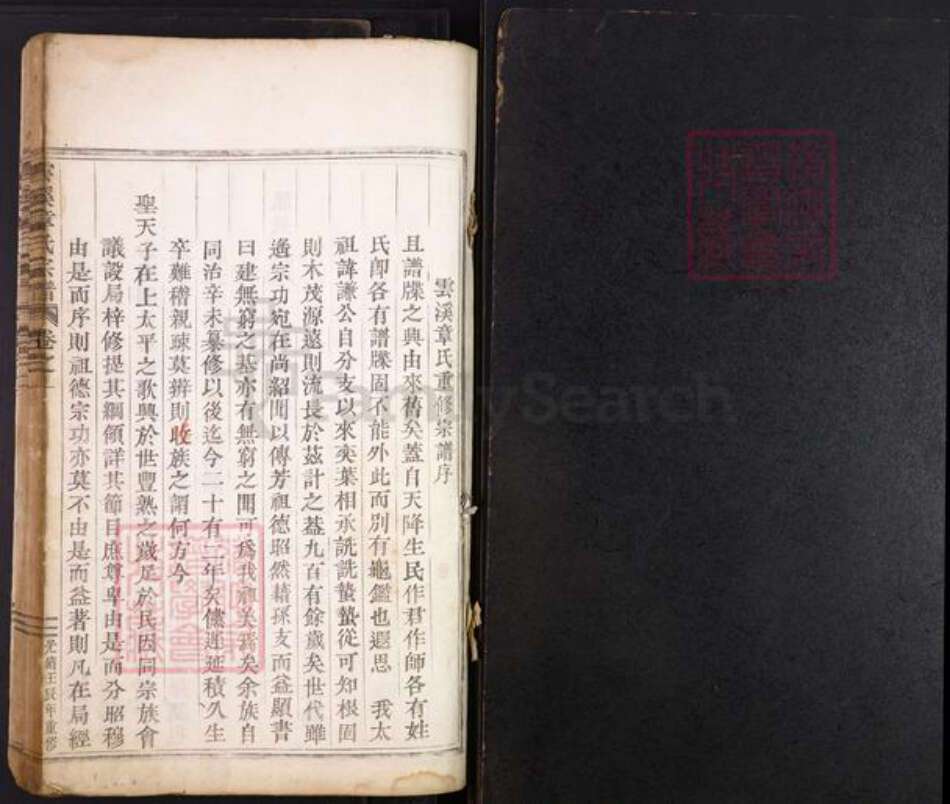 雲溪章氏重修宗譜序
且譜牒之興由來舊矣蓋自天降生民作君作師各有姓
氏卽各有譜牒固不能外此而別有龜鑑也遐思 我太
祖諱謙公自分支以來奕葉相承詵詵蟄蟄從可知根固
則木茂源遠則流長於茲計之葢九百有餘歲矣世代雖
遙宗功宛在尚紹聞以傳芳祖德昭然藉孫支而益顯書
曰建無窮之基亦有無窮之聞可為我 矣余族自
同治辛未纂修以後迄今二十有二年矣儻遲延積久生
卒難稽親疎莫辨則收族之謂何方今
聖天子在上太平之歌興於世豐熟之歲足於民因同宗族會
議設局梓修提其綱領詳其節目庶尊卑由是而分昭穆
由是而序則祖德宗功亦莫不由是而益著則凡在局經
雲溪章氏宗譜 卷之一
光緒壬辰年重修
FamilySearch